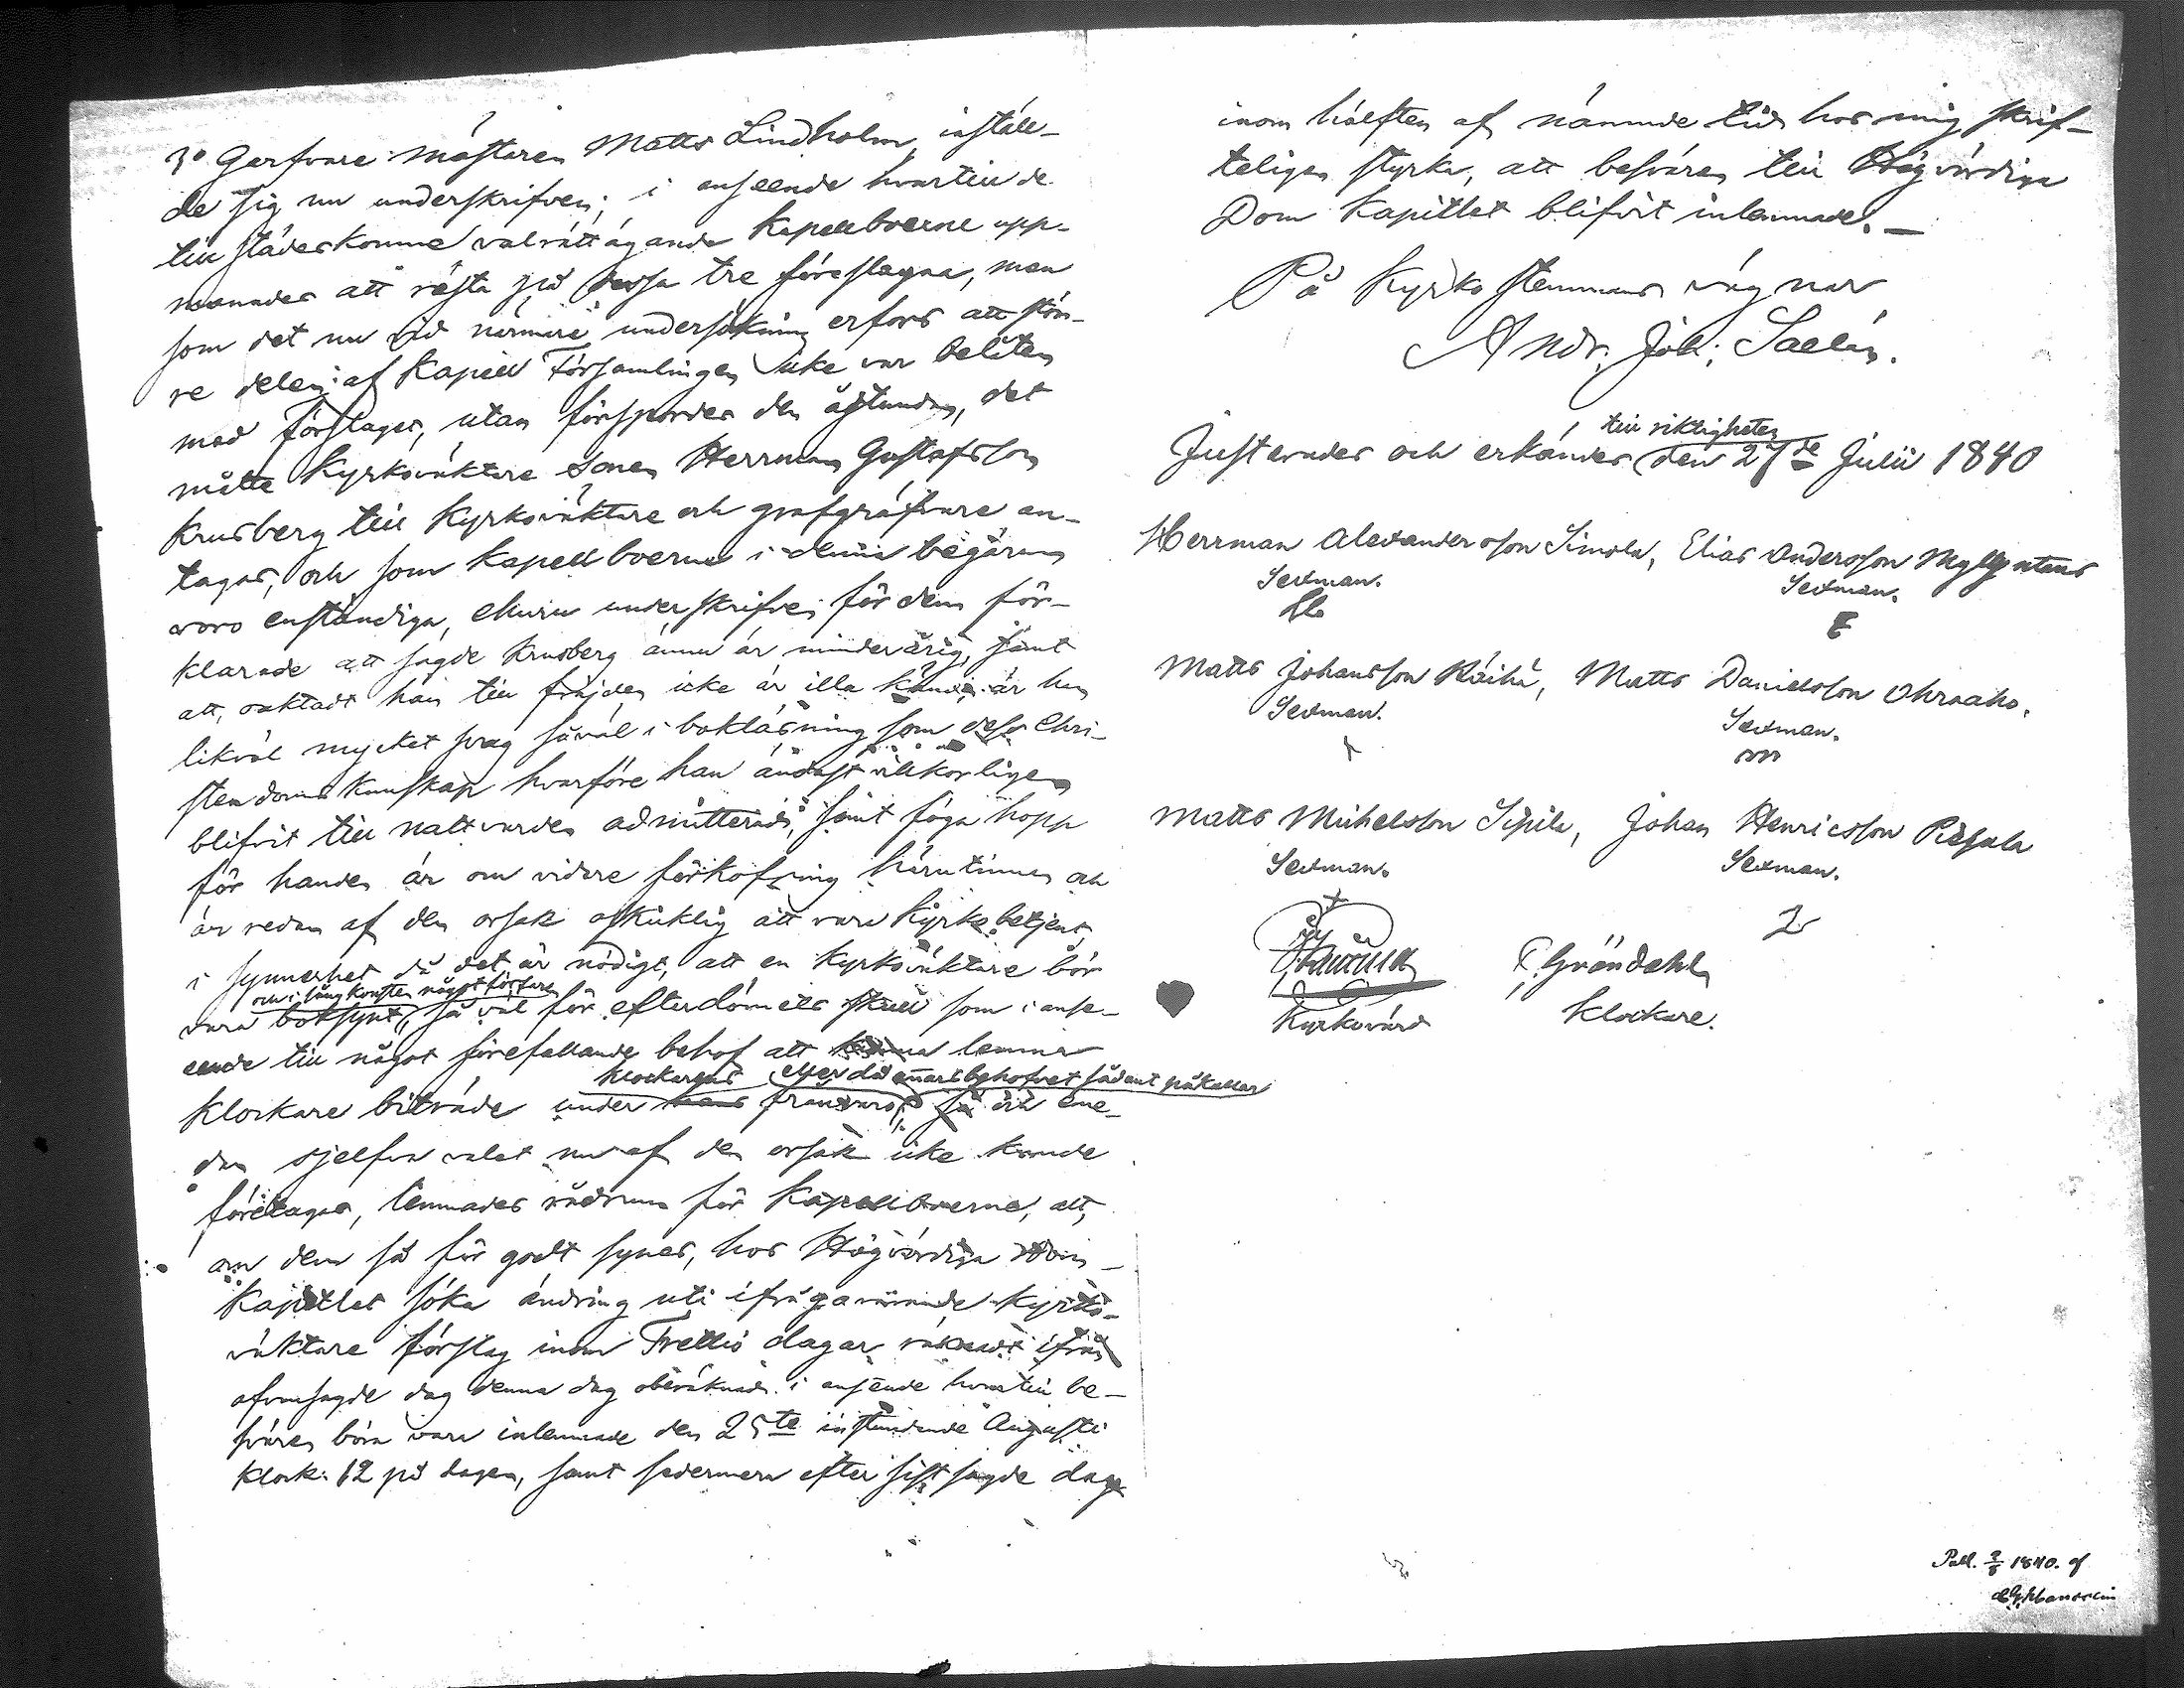 3o Gerfvare mästaren Matts Lindholm, instäle-
de sig nu underskrifven; i anseende hvartill de
till städeskomne valrättägande Kapellboerne upp-
manades att rösta på dessa tre föreslagna, men
som det nu vid närmare undersökning erfors att stör-
re delen af Kapell Församlingen icke var belåten
med Förslaget, utan förspordes den åstundan, det
måtte Kyrkoväktare sonen Herrman Gustafsson
Krusberg till Kyrkoväktare och grafgräfvare an-
tagas, och som Kapellboerne i denna begäran
voro enständiga, ehuru underskrifven för dem för-
klarade att sagde Krusberg ännu är minderårig, samt
att, oaktadt han till fräjden icke är illa känd, är han
likväl mycket svag såväl i bokläsning som dess Chri-
stendoms Kunskap hvarföre han endast villkorligen
blifvit till nattvarden admitterad, samt föga hopp
för handen är om vidare förkofring härutinnan och
är redan af den orsak oskicklig att vara Kyrko betjent,
i synnerhet då det är nödigt, att en Kyrkoväktare bör
och i sång konsten något förfaren
vara boksynt, så väl för efterdömets skull som i anse-
ende till något förefallande behof att lemna
klockarens eller då annars behofvet sådant påkallar
Klockare biträde under hans frånvaro, så och eme-
dan sjelfva valet nu af den orsak icke kunde
företagas, lemnades rådrum för Kapellboerne, att,
om dem så för godt synes, hos Högvördiga Dom-
Kapitlet söka ändring uti ifrågavarande Kyrko-
väktare förslag inom Trettio dagar räknadt ifrån
ofvansagde dag denna dag oberäknad i anseende hvartill be-
svären böra vara inlemnade den 25te instundande Augusti
Klock. 12 på dagen, samt sedermera efter sist sagde dag
inom hälften af nämnde tid hos mig skrif-
teligen styrka, att besvären till Högvördiga
Dom Kapitlet blifvit inlemnade.—
På Kyrko stemmans vägnar
Andr. Joh. Saelán.
till riktigheten
Justerades och erkändes den 27de Julii 1840
Herrman Alexandersson Simola, Elias Andersson
Sexman. Sexman.
Matts Johansson Räihä, Matts Danielsson Ohraaho.
Sexman. Sexman.
m
Matts Michelsson Sipilä, Johan Henricsson
Sexman. Sexman.
Gröndahl
Kyrkovärd Klockare.
1840. af